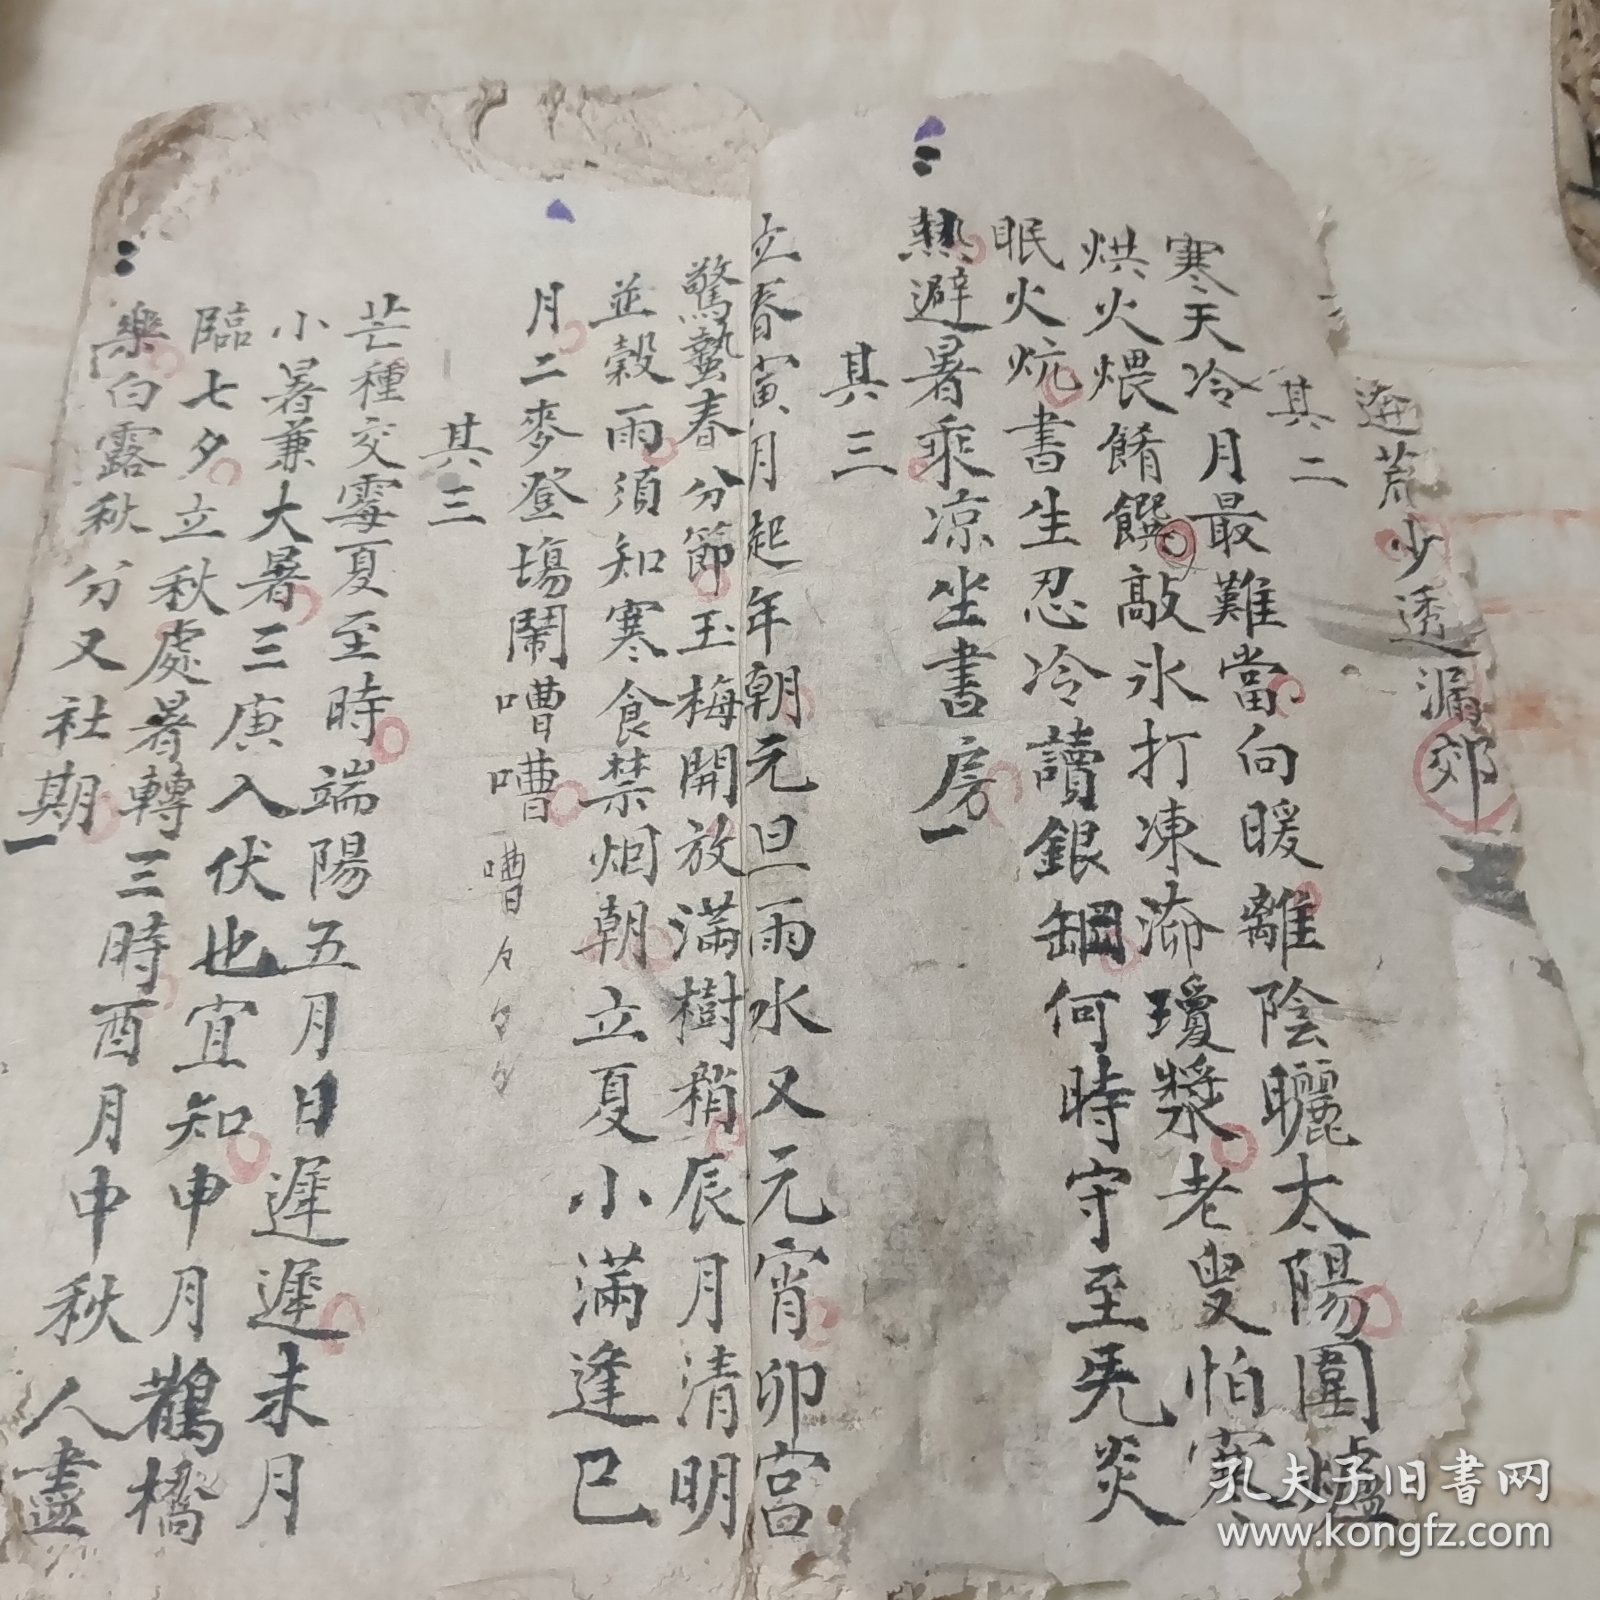 荒少透漏郊
其二
寒天冷月最難當向暖離陰曬太陽圍爐
烘火煨餚饌敲氷打凍瓊漿老叟怕寒
眠火炕書生忍冷讀銀缸何時守至炎
熱避暑乘凉坐書房
其三
立春寅月起年朝元旦雨水又元宵卯宫
驚蟄春分節玉梅開放滿樹稍辰月清明
並穀雨須知寒食禁烟朝立夏小滿逢巳
月二麥登塲鬧嘈嘈
嘈
其三
芒種交霉夏至時端陽五月日遲遲未月
小暑兼大暑三庚入伏也宜知申月鵲橋
臨七夕立秋處暑轉三時酉月中秋人盡
樂白露秋分又社期
孔夫子旧書网
www.kongfz.com